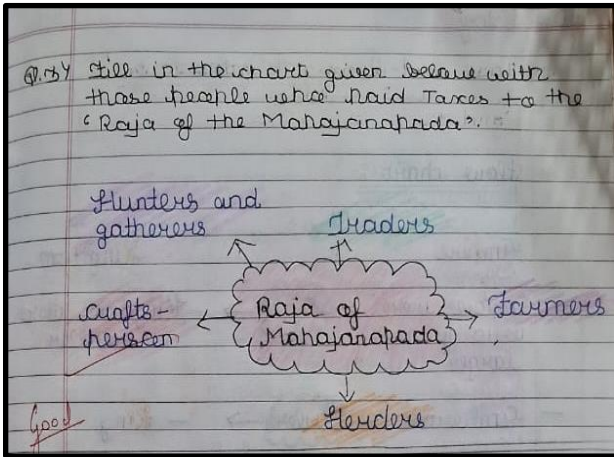 Q.3y Fill in the chart given below with
those people who paid Taxes to the
"Raja of the Mahajanapada".
Hunters and
gatherers
Traders
Crafts-
person
Raja of
Mahajanapada
Farmers
Herders
Good